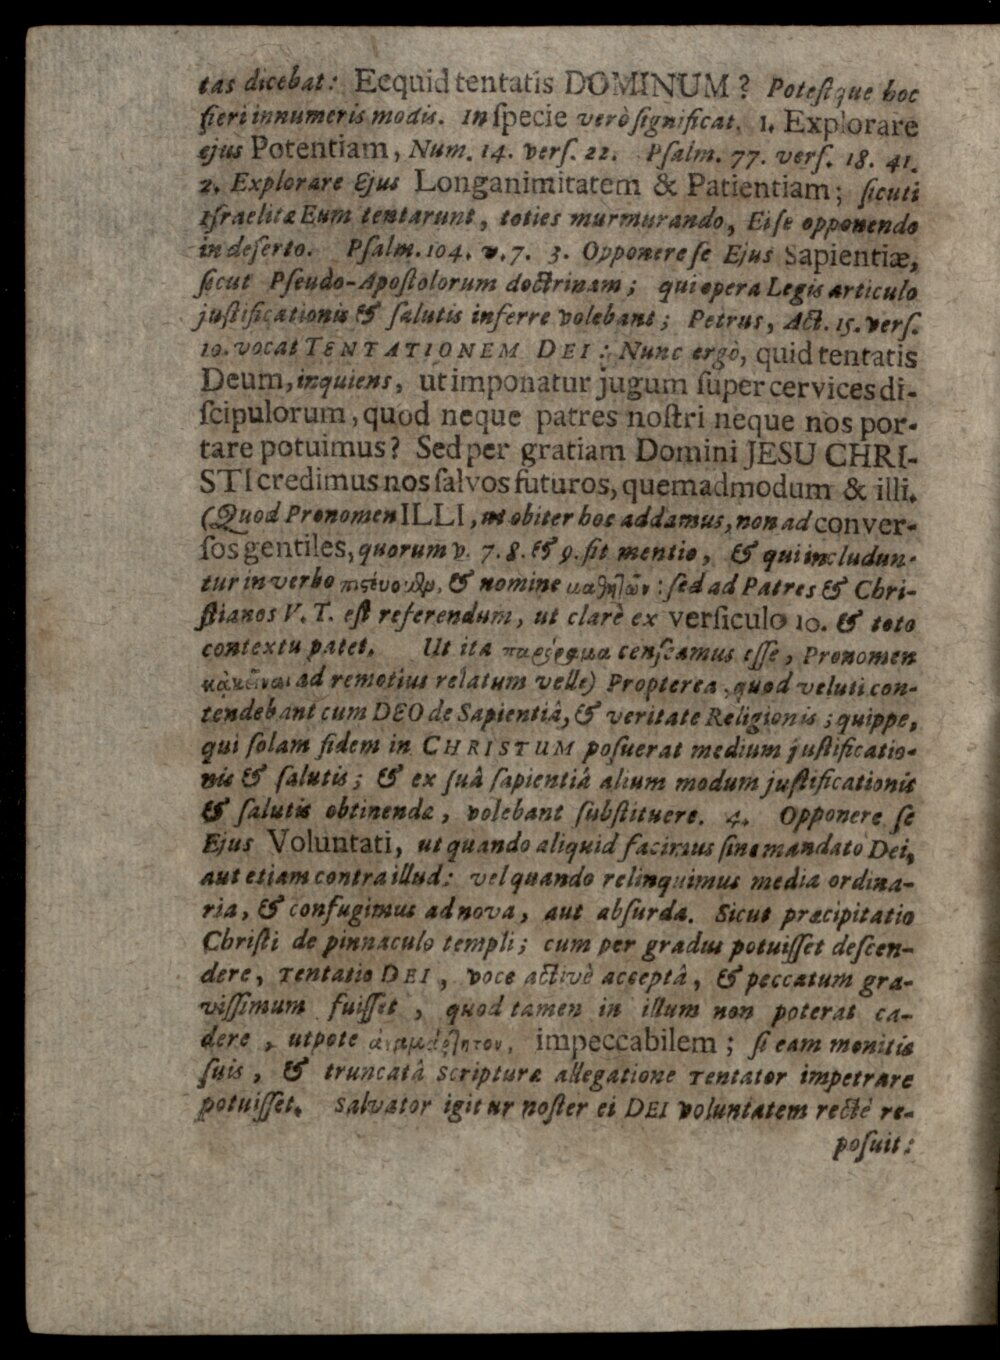 tas dicebat: Ecquid tentatis DOMINUM? Potestque hoc
fieri innumeris modis. In specie verò significat. 1. Explorare
ejus Potentiam, Num. 14. vers. 22. Psalm. 77. vers. 18. 41.
2. Explorare Ejus Longanimitatem & Patientiam; sicuti
Israelitæ Eum tentarunt, toties murmurando, Ei se opponendo
in deserto. Psalm. 104. v. 7. 3. Opponere se Ejus Sapientiæ,
sicut Pseudo-Apostolorum doctrinam; qui opera Legis articulo
justificationis & salutis inferre volebant; Petrus, Act. 15. vers.
10. vocat TENTATIONEM DEI: Nunc ergò, quid tentatis
Deum, inquiens, ut imponatur jugum super cervices di-
scipulorum, quod neque patres nostri neque nos por-
tare potuimus? Sed per gratiam Domini JESU CHRI-
STI credimus nos salvos futuros, quemadmodum & illi.
(Quod Pronomen ILLI, ut obiter hoc addamus, non ad conver-
sos gentiles, quorum v. 7. 8. & 9. fit mentio, & qui includun-
tur in verbo & nomine : sed ad Patres & Chri-
stianos V. T. est referendum, ut clarè ex versiculo 10. & toto
contextu patet. Ut ita censeamus esse, Pronomen
ad remotius relatum velle) Propterea, quod veluti con-
tendebant cum DEO de Sapientiâ, & veritate Religionis; quippe,
qui solam fidem in CHRISTUM posuerat medium justificatio-
nis & salutis; & ex suâ sapientiâ alium modum justificationis
& salutis obtinendæ, volebant substituere. 4. Opponere se
Ejus Voluntati, ut quando aliquid facimus sine mandato Dei,
aut etiam contra illud: vel quando relinquimus media ordina-
ria, & confugimus ad nova, aut absurda. Sicut præcipitatio
Christi de pinnaculo templi; cum per gradus potuisset descen-
dere, Tentatio DEI, voce activè acceptâ, & peccatum gra-
vissimum fuisset, quod tamen in illum non poterat ca-
dere, utpote impeccabilem; si eam monitis
suis, & truncatâ Scripturæ allegatione Tentator impetrare
potuisset. Salvator igitur noster ei DEI voluntatem rectè re-
posuit: